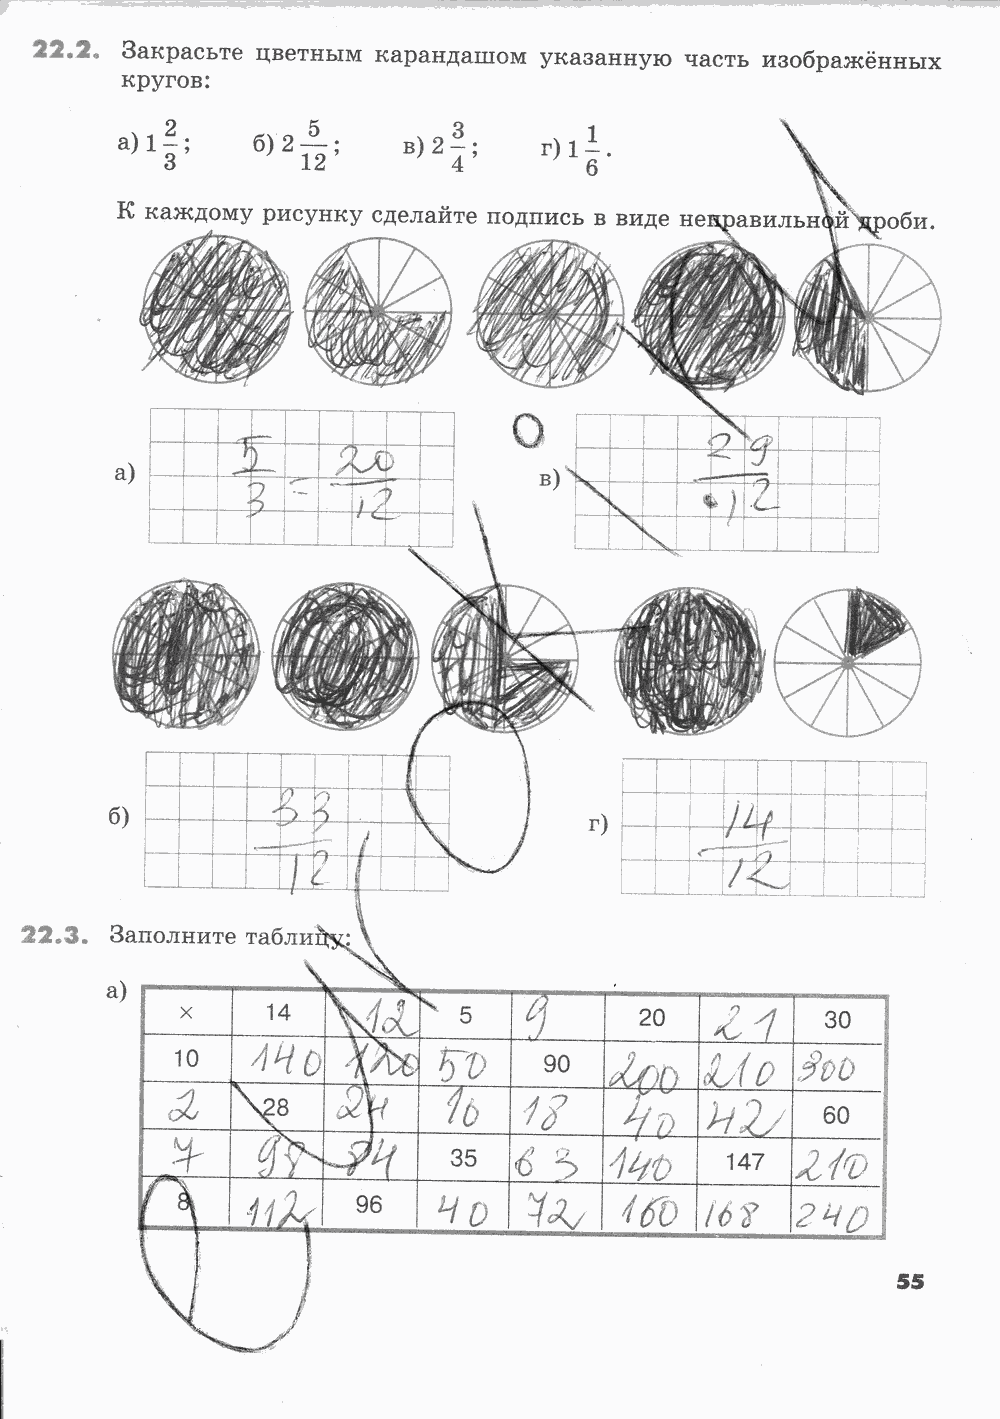 22.2. Закрасьте цветным карандашом указанную часть изображённых
кругов:
а) 1 2/3; б) 2 5/12; в) 2 3/4; г) 1 1/6.
К каждому рисунку сделайте подпись в виде неправильной дроби.
а) 5/3 = 20/12 в) 29/12
б) 33/12 г) 14/12
22.3. Заполните таблицу:
а)
× 14 12 5 9 20 21 30
10 140 120 50 90 200 210 300
2 28 24 10 18 40 42 60
7 98 84 35 63 140 147 210
8 112 96 40 72 160 168 240
55